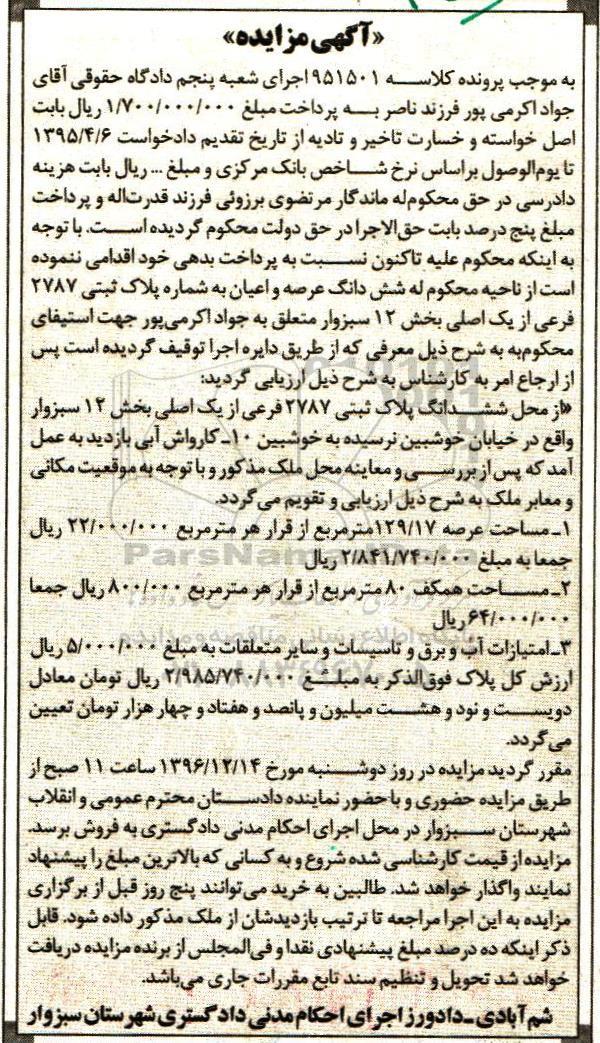 «آگهی مزایده»
به موجب پرونده کلاسه ۹۵۱۵۰۱ اجرای شعبه پنجم دادگاه حقوقی آقای
جواد اکرمی پور فرزند ناصر به پرداخت مبلغ ۱/۷۰۰/۰۰۰/۰۰۰ ریال بابت
اصل خواسته و خسارت تاخیر و تادیه از تاریخ تقدیم دادخواست ۱۳۹۵/۴/۶
تا یوم‌الوصول براساس نرخ شاخص بانک مرکزی و مبلغ ... ریال بابت هزینه
دادرسی در حق محکوم‌له ماندگار مرتضوی برزوئی فرزند قدرت‌اله و پرداخت
مبلغ پنج درصد بابت حق‌الاجرا در حق دولت محکوم گردیده است. با توجه
به اینکه محکوم علیه تاکنون نسبت به پرداخت بدهی خود اقدامی ننموده
است از ناحیه محکوم له شش دانگ عرصه و اعیان به شماره پلاک ثبتی ۲۷۸۷
فرعی از یک اصلی بخش ۱۲ سبزوار متعلق به جواد اکرمی‌پور جهت استیفای
محکوم‌به به شرح ذیل معرفی که از طریق دایره اجرا توقیف گردیده است پس
از ارجاع امر به کارشناس به شرح ذیل ارزیابی گردید:
«از محل ششدانگ پلاک ثبتی ۲۷۸۷ فرعی از یک اصلی بخش ۱۲ سبزوار
واقع در خیابان خوشبین نرسیده به خوشبین ۱۰- کارواش آبی بازدید به عمل
آمد که پس از بررسی و معاینه محل ملک مذکور و با توجه به موقعیت مکانی
و معابر ملک به شرح ذیل ارزیابی و تقویم می‌گردد.
۱ـ مساحت عرصه ۱۲۹/۱۷مترمربع از قرار هر مترمربع ۲۲/۰۰۰/۰۰۰ ریال
جمعا به مبلغ ۲/۸۴۱/۷۴۰/۰۰۰ ریال
۲ـ مساحت همکف ۸۰ مترمربع از قرار هر مترمربع ۸۰۰/۰۰۰ ریال جمعا
۶۴/۰۰۰/۰۰۰ ریال
۳ـ امتیازات آب و برق و تاسیسات و سایر متعلقات به مبلغ ۵/۰۰۰/۰۰۰ ریال
ارزش کل پلاک فوق‌الذکر به مبلغ ۲/۹۸۵/۷۴۰/۰۰۰ ریال تومان معادل
دویست و نود و هشت میلیون و پانصد و هفتاد و چهار هزار تومان تعیین
می‌گردد.
مقرر گردید مزایده در روز دوشنبه مورخ ۱۳۹۶/۱۲/۱۴ ساعت ۱۱ صبح از
طریق مزایده حضوری و با حضور نماینده دادستان محترم عمومی و انقلاب
شهرستان سبزوار در محل اجرای احکام مدنی دادگستری به فروش برسد.
مزایده از قیمت کارشناسی شده شروع و به کسانی که بالاترین مبلغ را پیشنهاد
نمایند واگذار خواهد شد. طالبین به خرید می‌توانند پنج روز قبل از برگزاری
مزایده به این اجرا مراجعه تا ترتیب بازدیدشان از ملک مذکور داده شود. قابل
ذکر اینکه ده درصد مبلغ پیشنهادی نقدا و فی‌المجلس از برنده مزایده دریافت
خواهد شد تحویل و تنظیم سند تابع مقررات جاری می‌باشد.
شم آبادی ـ دادورز اجرای احکام مدنی دادگستری شهرستان سبزوار